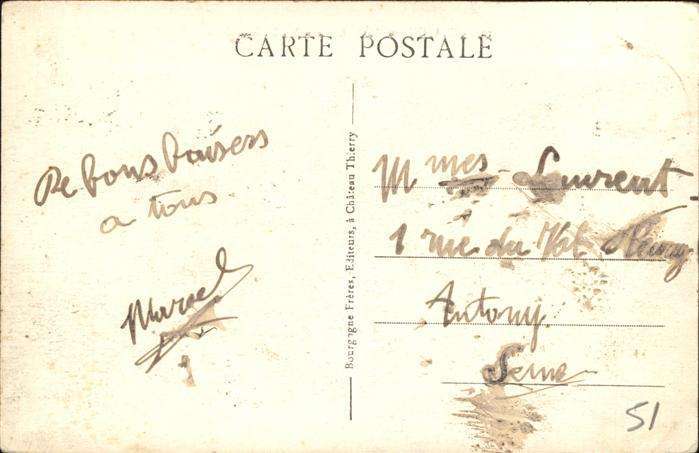 CARTE POSTALE
De bons baisers
a tous
Marcel
Bourgogne Frères, Editeurs, à Château Thierry
Mmes Laurent
1 rue du Val Fleury
Antony
Seine
51